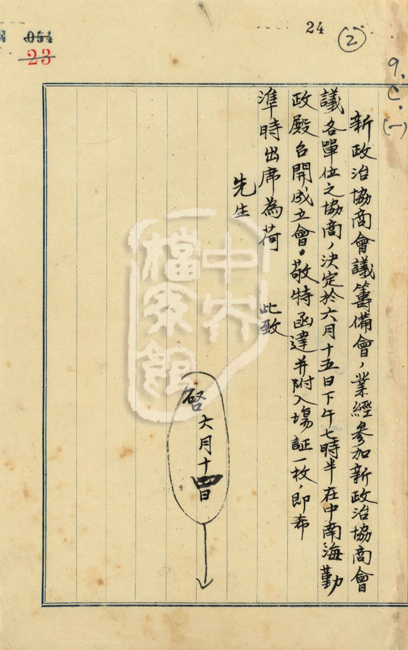 054
23
24
2
9.C.(一)
新政治協商會議籌備會,業經參加新政治協商會
議各單位之協商,決定於六月十五日下午七時半在中南海勤
政殿召開成立會。敬特函達并附入場証一枚,即希
準時出席為荷 此致
先生
啓六月十四日
中央檔案館